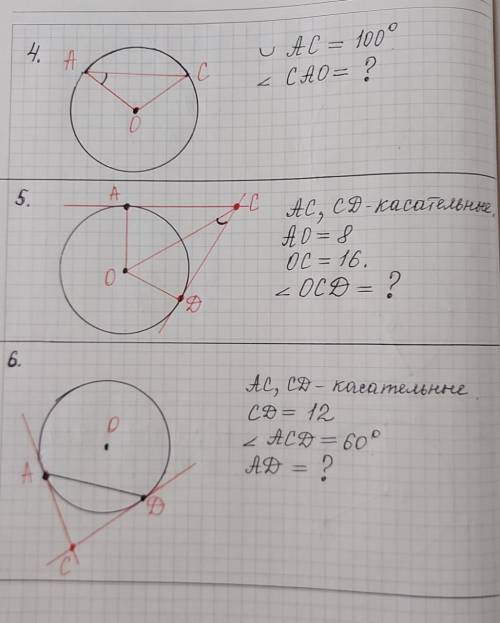 4.
A
C
O
◡ AC = 100°
∠ CAO = ?
5.
A
C
O
D
AC, CD - касательные,
AO = 8
OC = 16.
∠ OCD = ?
6.
O
A
D
C
AC, CD - касательные.
CD = 12
∠ ACD = 60°
AD = ?